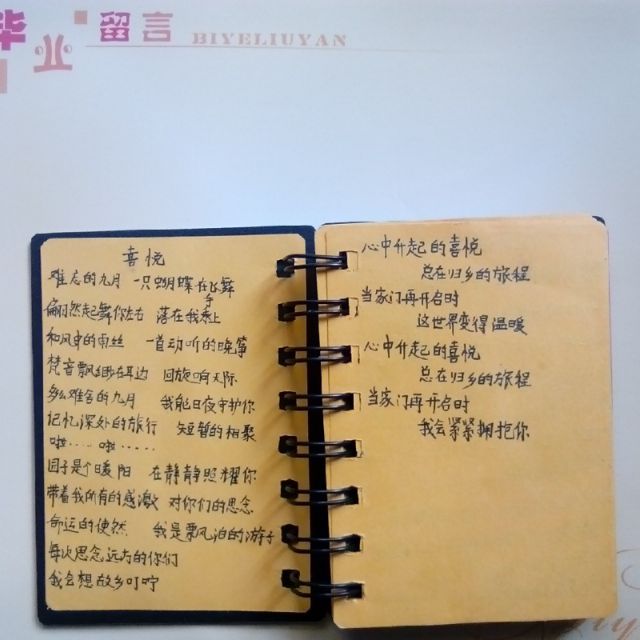 毕业留言 BIYELIUYAN
喜悦
难忘的九月 一只蝴蝶在飞舞
翩翩然起舞你左右 落在我手上
和风中的雨丝 一首动听的晚笛
梵音飘绕在耳边 回旋响天际
多么难舍的九月 我能日夜守护你
记忆深处的旅行 短暂的相聚
啦…… 啦……
园子是个暖阳 在静静照耀你
带着我所有的感激 对你们的思念
命运的使然 我是飘泊的游子
每次思念远方的你们
我会想故乡叮咛
心中升起的喜悦
总在归乡的旅程
当家门再开启时
这世界变得温暖
心中升起的喜悦
总在归乡的旅程
当家门再开启时
我会紧紧拥抱你